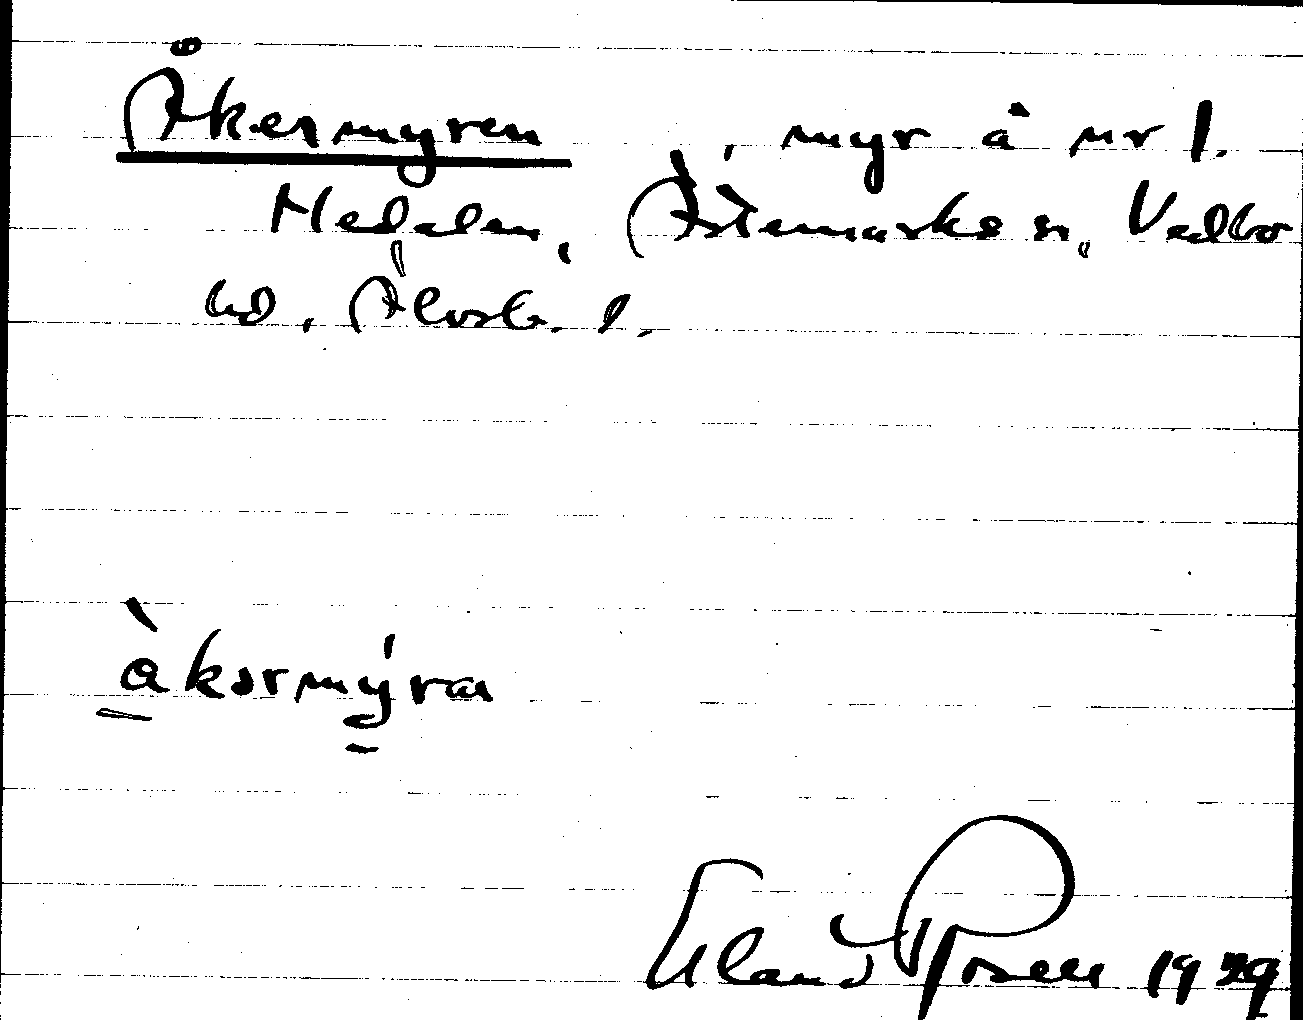 Åkermyren , myr å nr 1.
Nedalen, Ärtemarks sn, Vedbo
hd, Älvsb. l.
àkərmy̍ran
Eland Rosell 1929